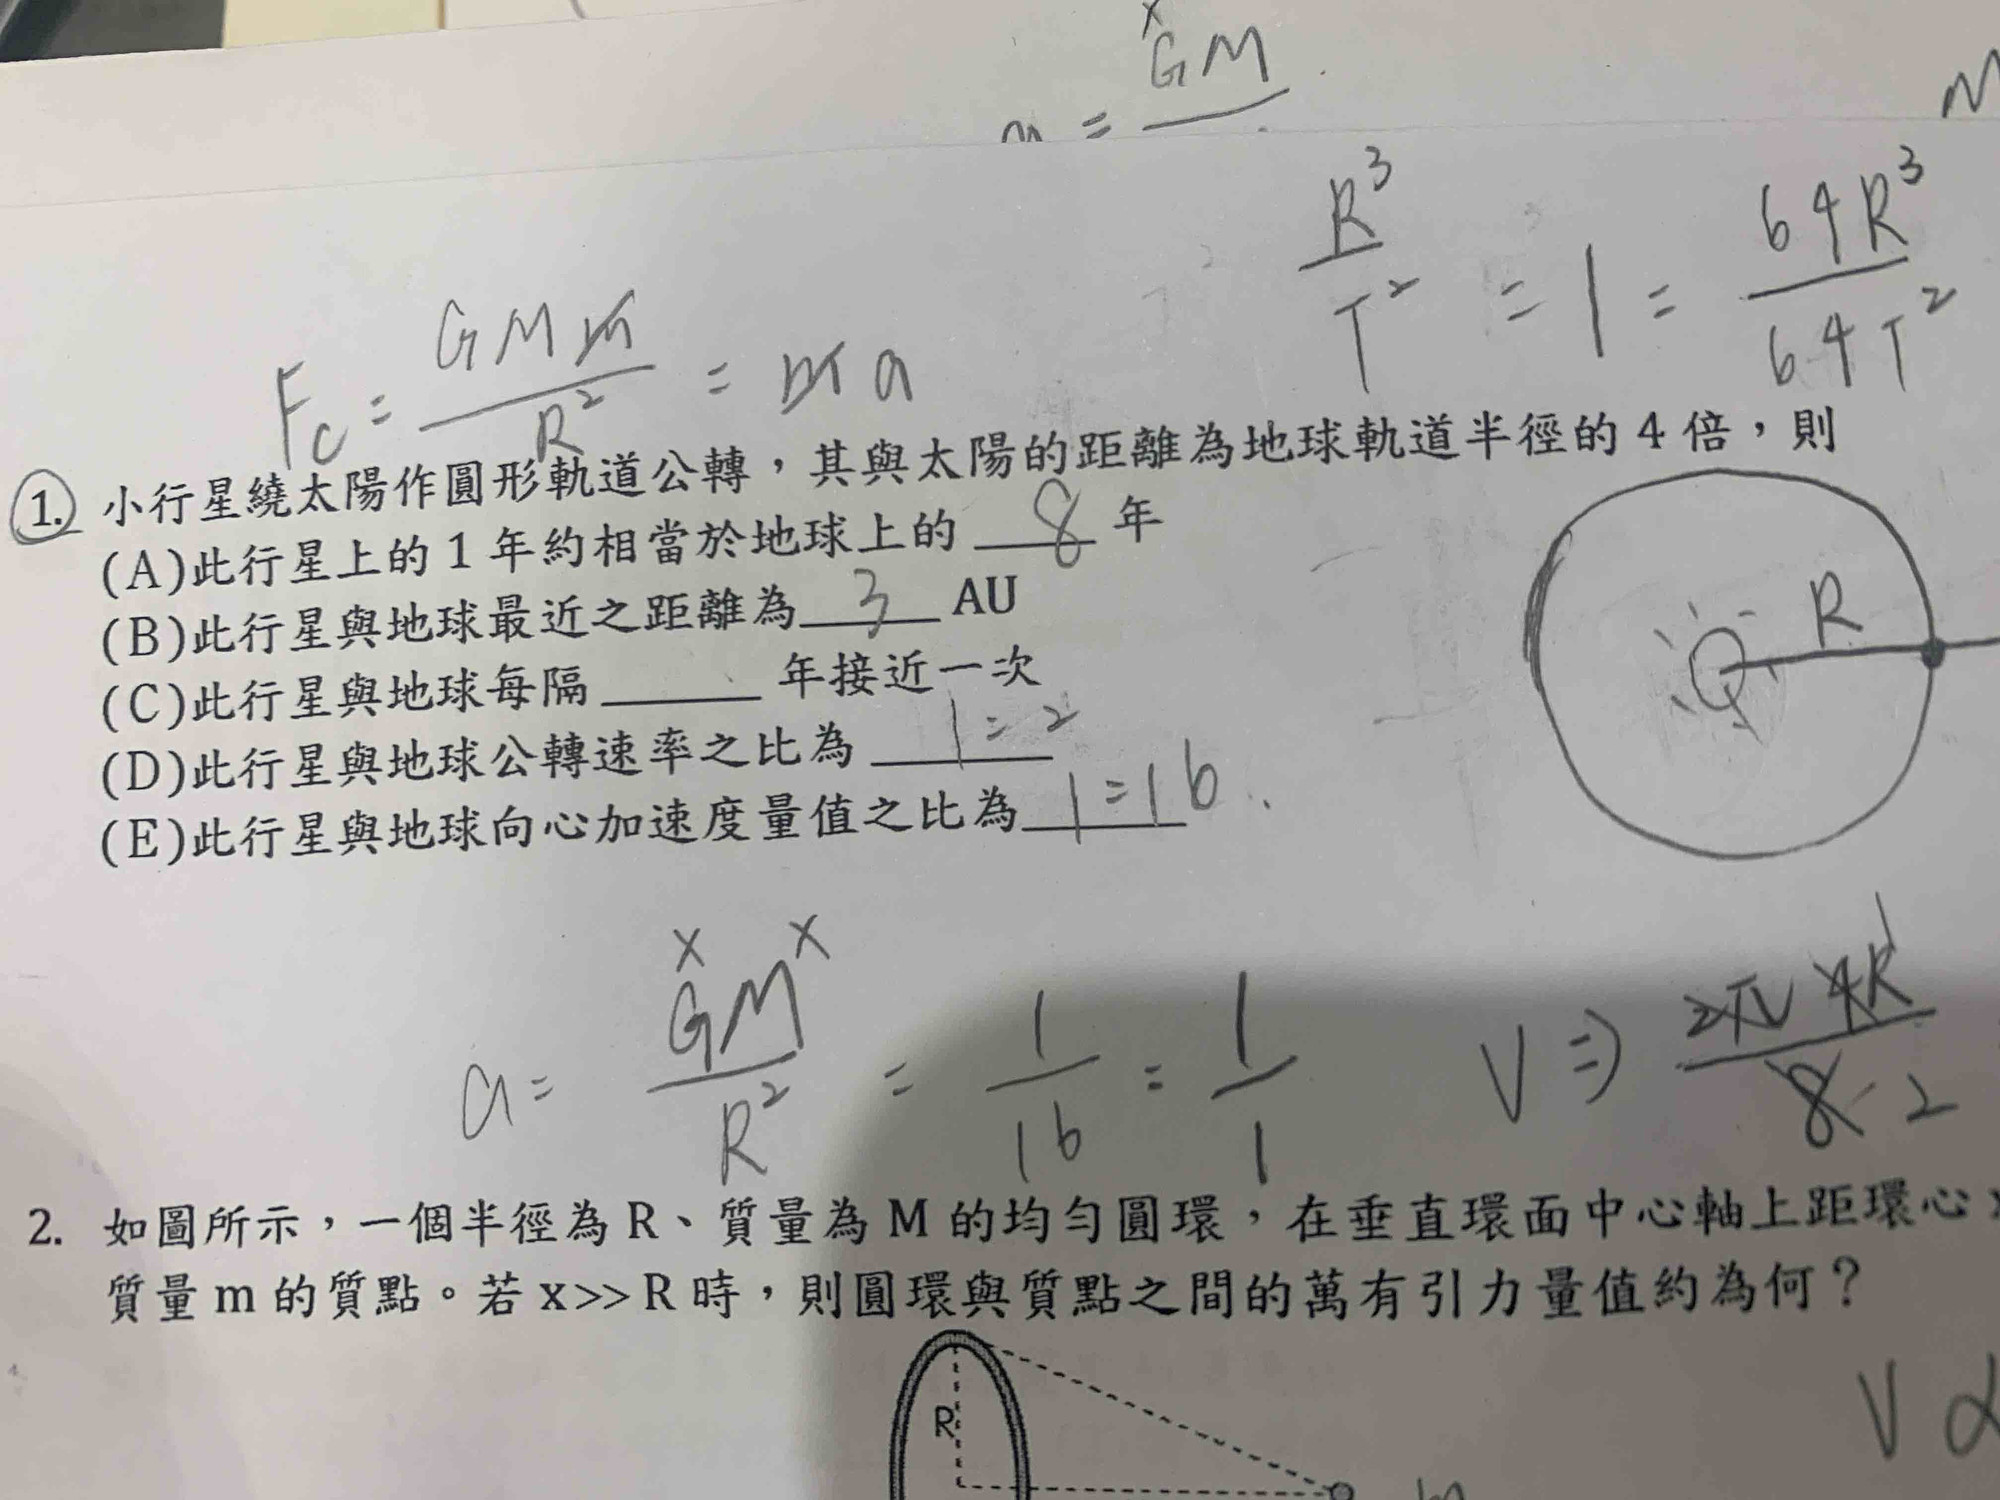 GM
R³/T² = 1 = 64R³/64T²
Fc = GMm/R² = ma
1. 小行星繞太陽作圓形軌道公轉,其與太陽的距離為地球軌道半徑的 4 倍,則
(A)此行星上的 1 年約相當於地球上的 8 年
(B)此行星與地球最近之距離為 3 AU
(C)此行星與地球每隔______年接近一次
(D)此行星與地球公轉速率之比為 1:2
(E)此行星與地球向心加速度量值之比為 1:16
R
a = GM/R² = 1/16 : 1/1
V ⇒ 2π4R/8 2
2. 如圖所示,一個半徑為 R、質量為 M 的均勻圓環,在垂直環面中心軸上距環心
質量 m 的質點。若 x>> R 時,則圓環與質點之間的萬有引力量值約為何?
R
V